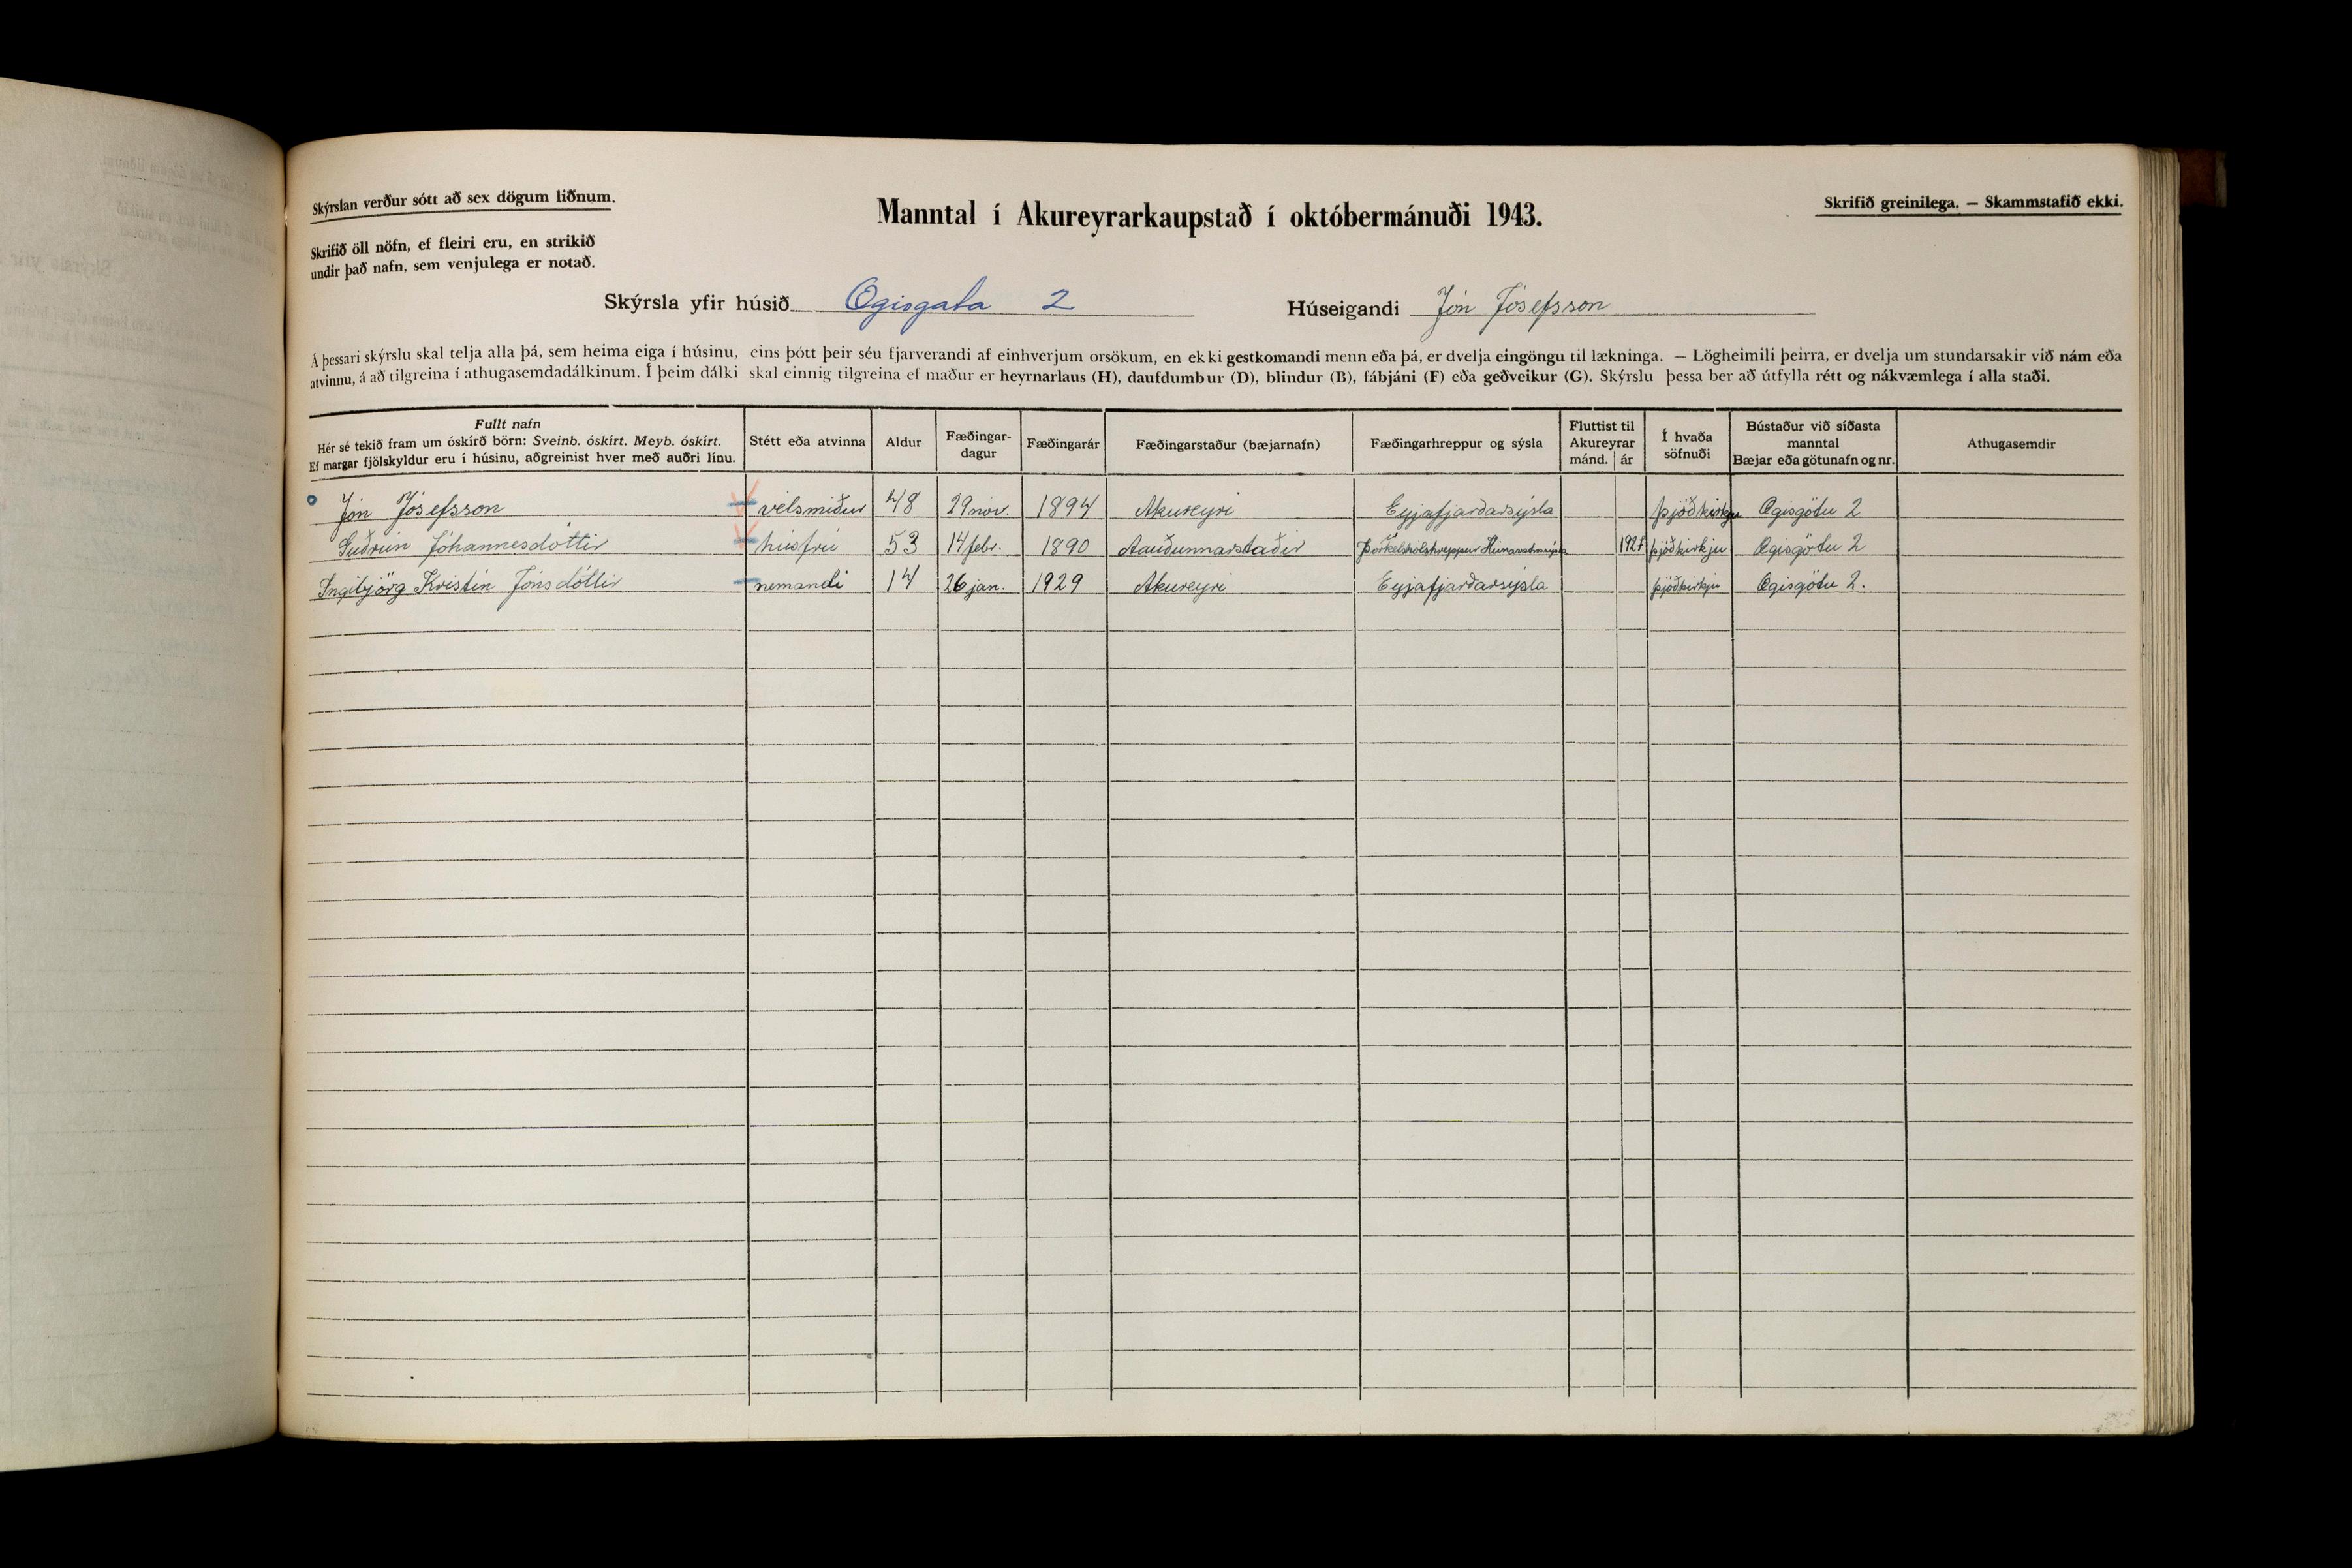 Skýrslan verður sótt að sex dögum liðnum.
Manntal í Akureyrarkaupstað í októbermánuði 1943.
Skrifið greinilega. — Skammstafið ekki.
Skrifið öll nöfn, ef fleiri eru, en strikið
undir það nafn, sem venjulega er notað.
Skýrsla yfir húsið Ægisgata 2 Húseigandi Jón Jósefsson
Á þessari skýrslu skal telja alla þá, sem heima eiga í húsinu, eins þótt þeir séu fjarverandi af einhverjum orsökum, en ekki gestkomandi menn eða þá, er dvelja eingöngu til lækninga. — Lögheimili þeirra, er dvelja um stundarsakir við nám eða
atvinnu, á að tilgreina í athugasemdadálkinum. Í þeim dálki skal einnig tilgreina ef maður er heyrnarlaus (H), daufdumbur (D), blindur (B), fábjáni (F) eða geðveikur (G). Skýrslu þessa ber að útfylla rétt og nákvæmlega í alla staði.
Fullt nafn
Hér sé tekið fram um óskírð börn: Sveinb. óskírt. Meyb. óskírt.
Ef margar fjölskyldur eru í húsinu, aðgreinist hver með auðri línu.
Stétt eða atvinna
Aldur
Fæðingar-
dagur
Fæðingarár
Fæðingarstaður (bæjarnafn)
Fæðingarhreppur og sýsla
Fluttist til
Akureyrar
mánd. ár
Í hvaða
söfnuði
Bústaður við síðasta
manntal
Bæjar eða götunafn og nr.
Athugasemdir
Jón Jósefsson vélsmiður 48 29 nov. 1894 Akureyri Eyjafjarðarsýsla þjóðkirkju Ægisgötu 2
Guðrún Jóhannesdóttir húsfrú 53 14 febr. 1890 Aauðunnarstaðir Þorkelshólshreppur Húnavatnssýsla 1927 þjóðkirkju Ægisgötu 2
Ingibjörg Kristín Jónsdóttir nemandi 14 26 jan. 1929 Akureyri Eyjafjarðarsýsla þjóðkirkju Ægisgötu 2.